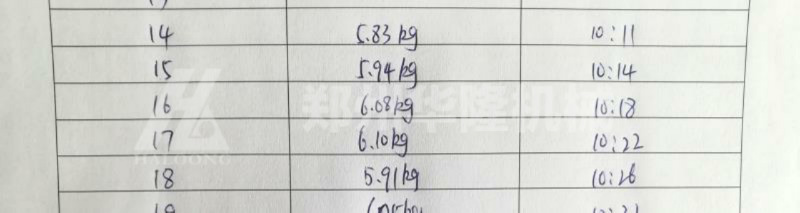 14 5.83kg 10:11
15 5.94kg 10:14
16 6.08kg 10:18
17 6.10kg 10:22
18 5.91kg 10:26
19
郑州华隆机械
HALOONG